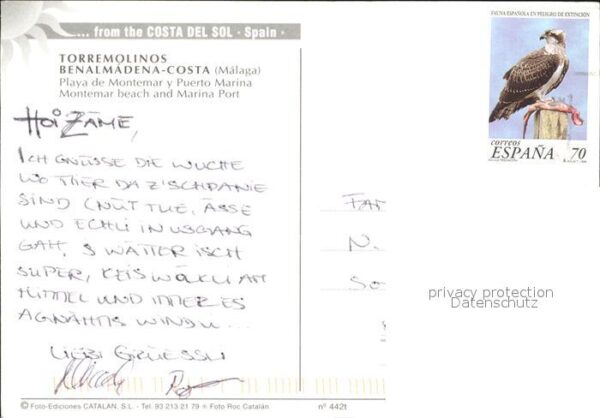 .... from the COSTA DEL SOL · Spain ·
TORREMOLINOS
BENALMÁDENA-COSTA (Málaga)
Playa de Montemar y Puerto Marina
Montemar beach and Marina Port
FAUNA ESPAÑOLA EN PELIGRO DE EXTINCIÓN
correos
ESPAÑA 70
HOI ZÄME,
ICH GNÜSSE DIE WUCHE
WO MIER DA Z'SCHPANIE
SIND (NÜT TUE, ÄSSE
UND ECHLI IN USGANG
GAH, S WÄTTER ISCH
SUPER, KEIS WÖLKLI AM
HIMMEL UND IMMER ES
AGNÄHMS WINDLI...
LIEBI GRÜESSLI
FAM
N.
privacy protection
Datenschutz
© Foto-Ediciones CATALAN, S.L. - Tel. 93 213 21 79 ® Foto Roc Catalán
nº 442t